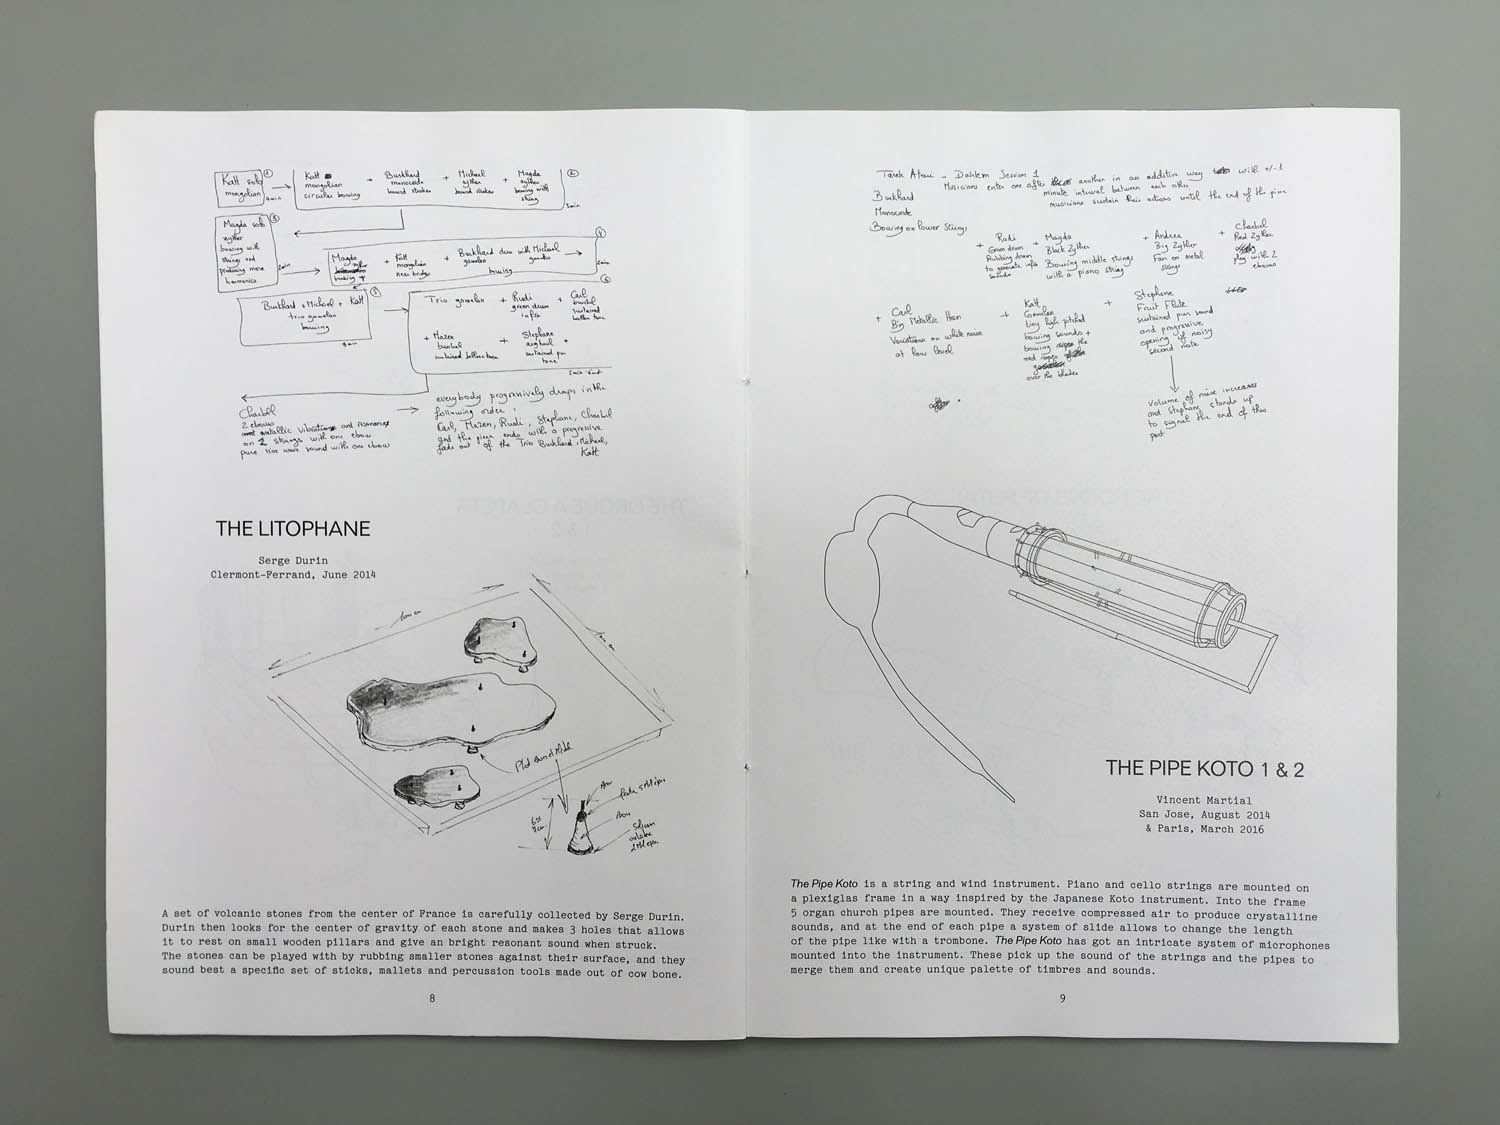 Katt solo
mongolian
1
4 min
Katt
mongolian
circular bowing
+
Burkhard
monocorde
bound stokes
+
Michael
zyther
bound stokes
+
Magda
zyther
bowing with
string
2
5 min
Magda solo
zyther
bowing with
strings and
producing more
harmonics
3
2min
Magda
bowing +
+
Katt
mongolian
near bridge
+
Burkhard duo with Michael
gamelan
bowing
4
5min
Burkhard + Michael + Katt
trio gamelan
bowing
5
3min
Trio gamelan
+
Rudi
green drum
infra
+
Carl
sustained
+
Mazen
sustained
+
Stephane
+
sustained pure
tone
6
5min
Charbel
2 ebows
metallic vibrations and resonances
on 2 strings with one ebow
pure sine wave sound with one ebow
everybody progressively drops in the
following order :
Carl, Mazen, Rudi, Stephane, Charbel
and the piece ends with a progressive
fade out of the Trio Burkhard, Michael,
Katt
THE LITOPHANE
Serge Durin
Clermont-Ferrand, June 2014
A set of volcanic stones from the center of France is carefully collected by Serge Durin.
Durin then looks for the center of gravity of each stone and makes 3 holes that allows
it to rest on small wooden pillars and give an bright resonant sound when struck.
The stones can be played with by rubbing smaller stones against their surface, and they
sound best a specific set of sticks, mallets and percussion tools made out of cow bone.
8
Tarek Atoui - Dahlem Session 1
Musicians enter one after another in an additive way with +/-1
minute interval between each other
musicians sustain their actions until the end of the piece
Burkhard
Monocorde
Bowing on Power Strings
+
Rudi
Green drum
Rubbing drum
to generate infra
sounds
+
Magda
Black Zyther
Bowing middle strings
with a piano string
+
Andrea
Big Zyther
Fan on metal
strings
+
Charbel
Red Zyther
play with 2
ebows
+
Carl
Big Metallic Horn
Variations on white noise
at low level
+
Katt
Gamelan
tiny high pitched
bowing sounds +
bowing the
end
over the blades
+
Stephane
Fruit Flute
sustained pure sound
and progressive
opening of noisy
second note
volume of noise increases
and Stephane stands up
to signal the end of this
part
THE PIPE KOTO 1 & 2
Vincent Martial
San Jose, August 2014
& Paris, March 2016
The Pipe Koto is a string and wind instrument. Piano and cello strings are mounted on
a plexiglas frame in a way inspired by the Japanese Koto instrument. Into the frame
5 organ church pipes are mounted. They receive compressed air to produce crystalline
sounds, and at the end of each pipe a system of slide allows to change the length
of the pipe like with a trombone. The Pipe Koto has got an intricate system of microphones
mounted into the instrument. These pick up the sound of the strings and the pipes to
merge them and create unique palette of timbres and sounds.
9